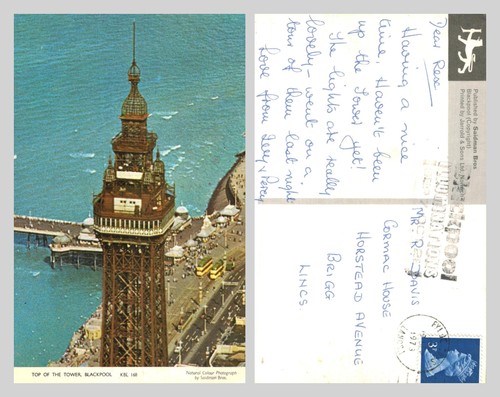 TOP OF THE TOWER, BLACKPOOL KBL 168
Natural Colour Photograph
by Saidman Bros.
Dear Rose
Having a nice
time, Haven't been
up the Tower yet!
The lights are really
lovely - went on a
tour of them last night
Love from
Published by Saidman Bros
Blackpool (Copyright)
Printed by Jarrold & Sons Ltd, Norwich
DAVIS
CORMAC HOUSE
HORSTEAD AVENUE
BRIGG
LINCS